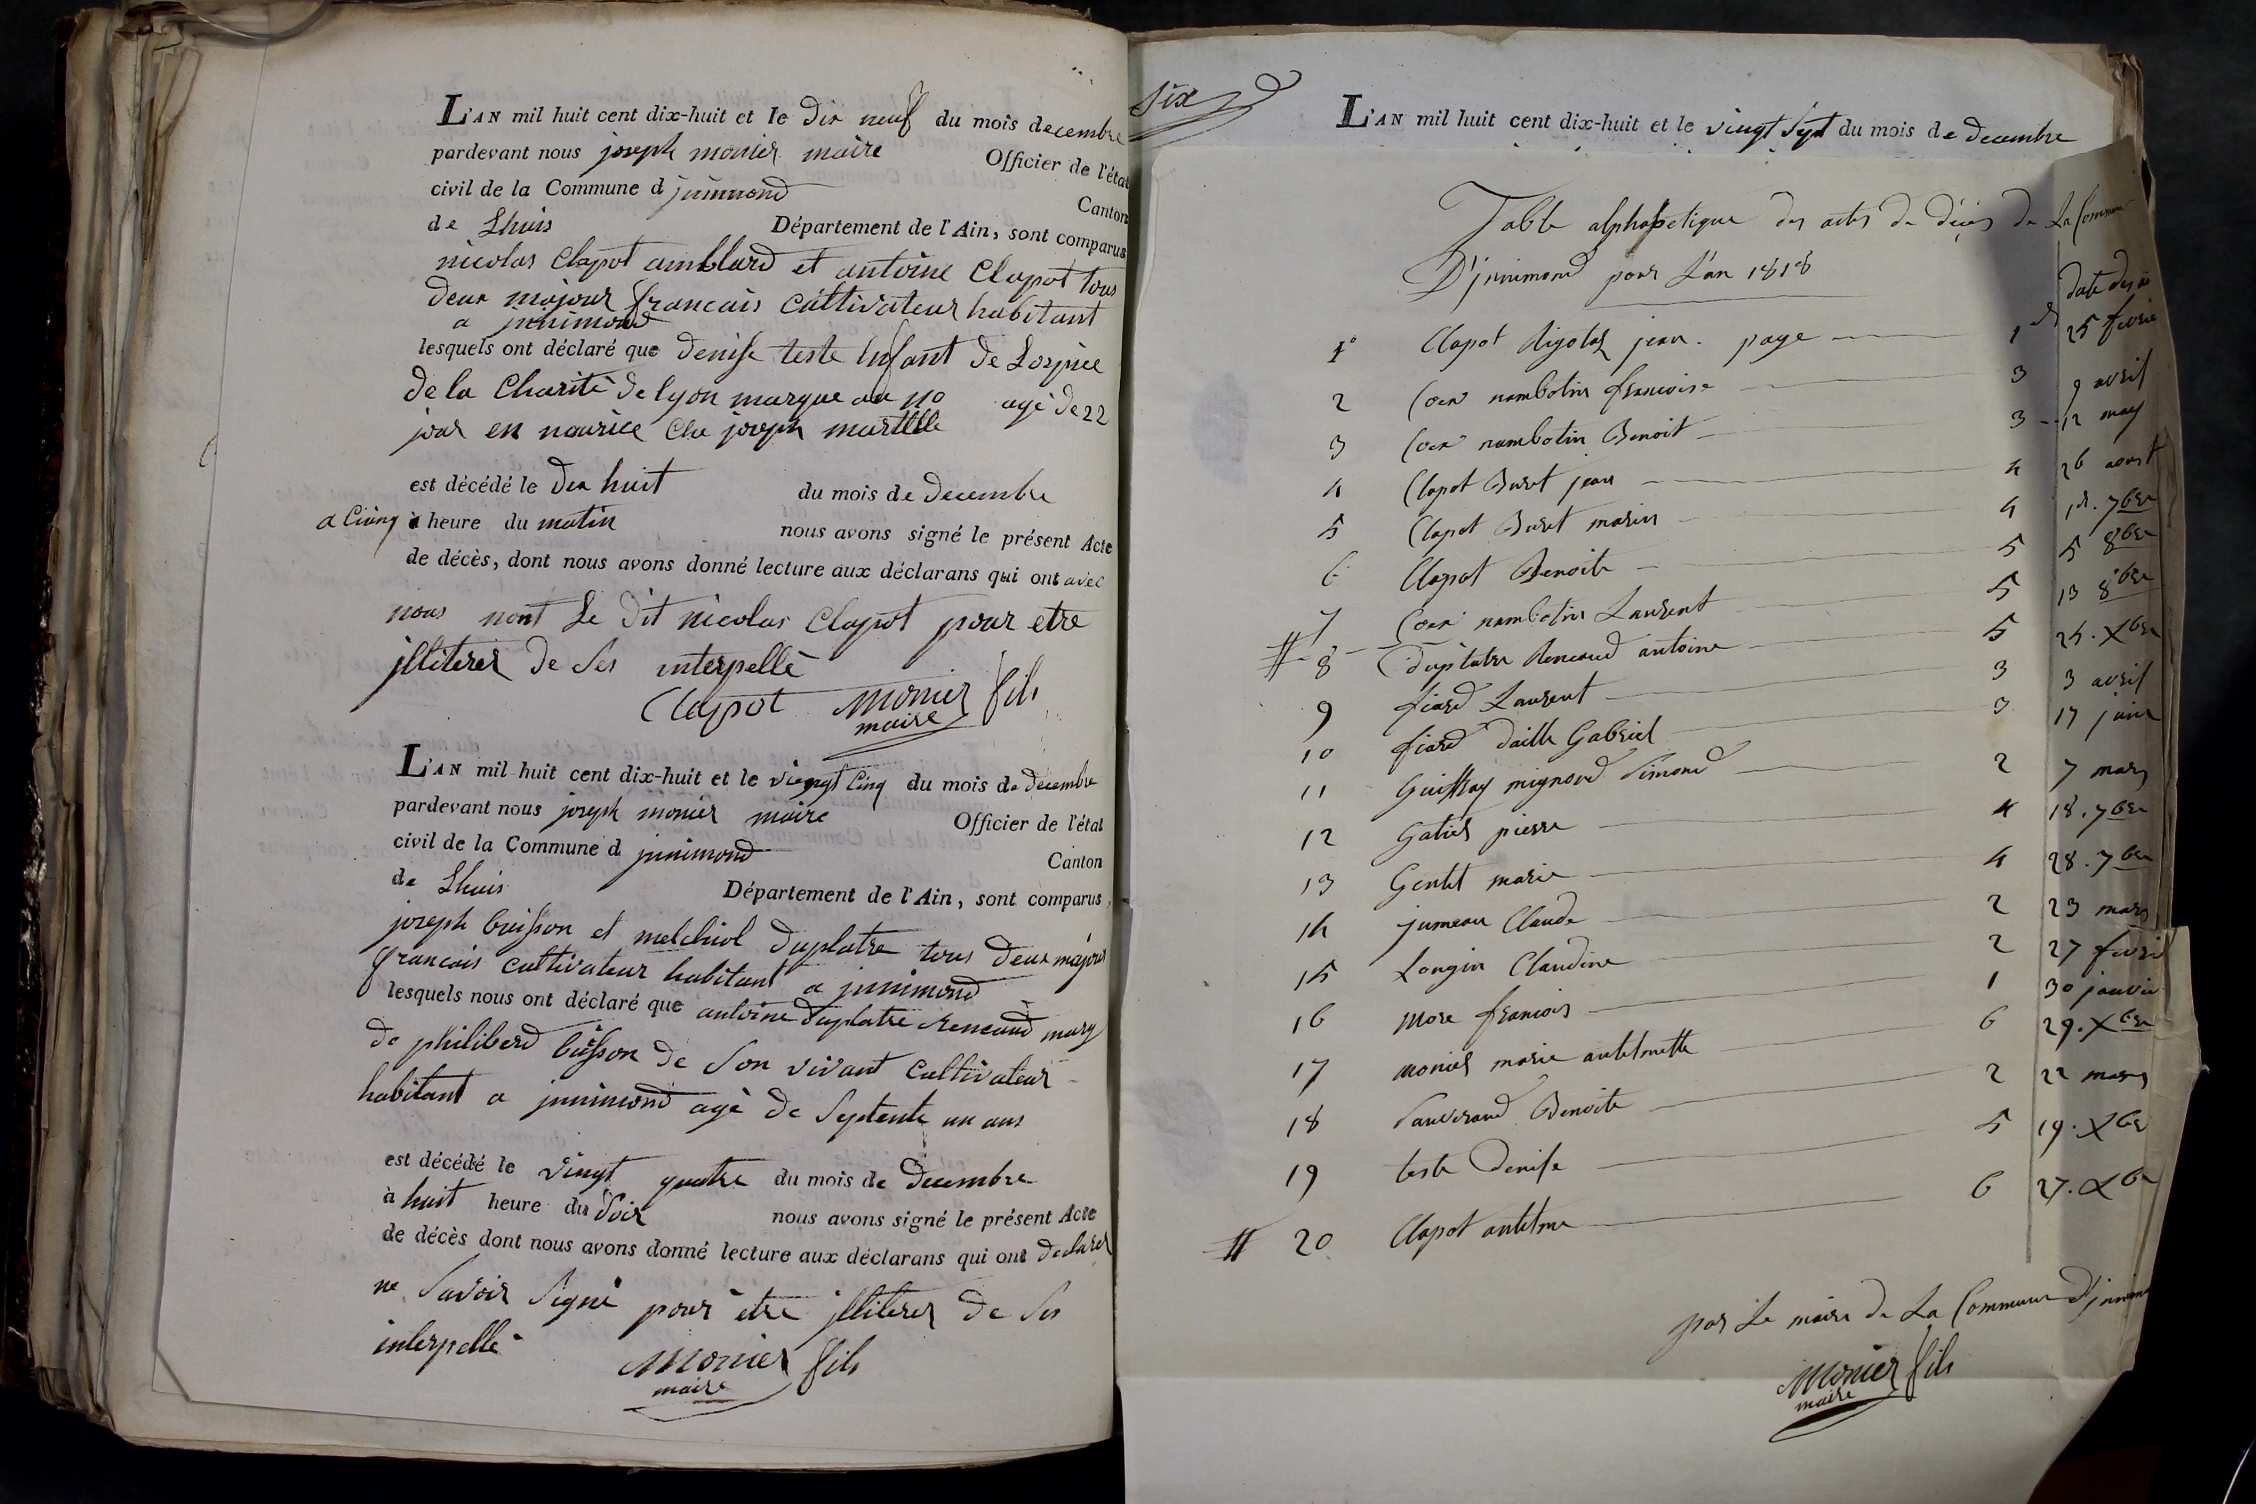 L'AN mil huit cent dix-huit et le dix neuf du mois decembre
pardevant nous joseph monier maire Officier de l'état
civil de la Commune d jnnimond Canton
de Lhuis Département de l'Ain, sont comparus
nicolas Clapot amblard et antoine Clapot tous
deux majour francais Cultivateur habitant
a jnnimond
lesquels ont déclaré que denise teste Enfant de Lospice
de la Charité de lyon marque au no agé de 22
jour en nourice Che joseph
est décédé le dix huit du mois de decembre
a Cinq à heure du matin nous avons signé le présent Acte
de décès, dont nous avons donné lecture aux déclarans qui ont avec
nous nont Le dit nicolas Clapot pour etre
jlliterer de Ses interpellé
Clapot Monier fils
maire
L'AN mil huit cent dix-huit et le viengt Cinq du mois de decembre
pardevant nous joseph monier maire Officier de l'état
civil de la Commune d jnnimond Canton
de Lhuis Département de l'Ain, sont comparus,
joseph buisson et melchiol duplatre tous deux majour
francais cultivateur habitant a jnnimond
lesquels nous ont déclaré que antoine duplatre Reneaud mary
de philiberd buisson de Son vivant Cultivateur
habitant a jnnimond agé de Septente un ans
est décédé le vingt quatre du mois de decembre
à huit heure du Soir nous avons signé le présent Acte
de décès dont nous avons donné lecture aux déclarans qui ont declarer
ne Savoir Signé pour être jlliterer de Ses
interpellé
Monier fils
maire
Six
L'AN mil huit cent dix-huit et le vingt Sept du mois de decembre
Table alphabetique des actes de décès de La Commune
D'jnnimond pour L'an 1818
date des
1º Clapot Rigolas jean. page 1 25 fevrie
2 Coer nambotin francoise 3 9 avril
3 Coer nambotin Benoit 3 12 may
4 Clapot Buret jean 4 26 aout
5 Clapot Buret marin 4 1r. 7bre
6 Clapot Benoite 5 5 8bre
7 Coer nambotin Laurent 5 13 8bre
8 Duplatre Reneaud antoine 5 25. Xbre
9 fiard Laurent 3 3 avril
10 fiard daille Gabriel 3 17 juin
11 Guiffray mignard Simond 2 7 mars
12 Gatier pierre 4 18. 7bre
13 Gentet marie 4 28. 7bre
14 jumeau Claude 2 23 mars
15 Longin Claudine 2 27 fevrie
16 More francois 1 30 janvie
17 Monier marie antelmette 6 29. Xbre
18 Sauverand Benoite 2 22 mars
19 teste denise 5 19. Xbre
20 Clapot antelme 6 27. Xbre
par Le maire de La Commune D'jnnimond
Monier fils
maire